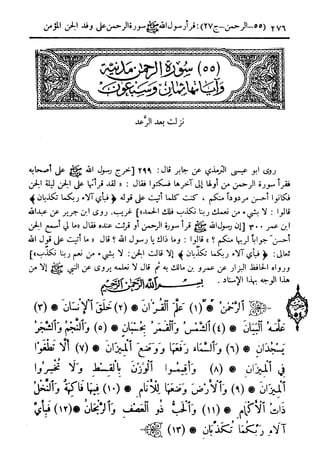 ٢٧٦ (٥٥-الرحمن-ج٢٧): قرأ رسول الله ﷺ سورة الرحمن على وفد الجن المؤمن
(٥٥) سورة الرحمن مدنية
وآياتها ثمان وسبعون
نزلت بعد الرعد
روى ابو عيسى الترمذي عن جابر قال: ٢٩٩ [خرج رسول الله ﷺ على أصحابه
فقرأ سورة الرحمن من أولها إلى آخرها فسكتوا فقال: «لقد قرأتها على الجن ليلة الجن
فكانوا أحسن مردوداً منكم، كنت كلما أتيت على قوله ﴿فبأي آلاء ربكما تكذبان﴾
قالوا: لا بشيء من نعمك ربنا نكذب فلك الحمد»] غريب. روى ابن جرير عن عبدالله
ابن عمر ٣٠٠ [إن رسول الله ﷺ قرأ سورة الرحمن أو قرئت عنده فقال: «ما لي أسمع الجن
أحسن جواباً لربها منكم؟» قالوا: وما ذاك يا رسول الله؟ قال: «ما أتيت على قول الله
تعالى: ﴿فبأي آلاء ربكما تكذبان﴾ إلا قالت الجن: لا بشيء من نعم ربنا نكذب»]
ورواه الحافظ البزار عن عمرو بن مالك به ثم قال لا نعلمه يروى عن النبي ﷺ إلا من
هذا الوجه بهذا الإسناد.
بسم الله الرحمن الرحيم
الرَّحْمٰنُ * (١) عَلَّمَ الْقُرْآنَ * (٢) خَلَقَ الْإِنْسَانَ * (٣)
عَلَّمَهُ الْبَيَانَ * (٤) الشَّمْسُ وَالْقَمَرُ بِحُسْبَانٍ * (٥) وَالنَّجْمُ وَالشَّجَرُ
يَسْجُدَانِ * (٦) وَالسَّمَاءَ رَفَعَهَا وَوَضَعَ الْمِيزَانَ * (٧) أَلَّا تَطْغَوْا
فِي الْمِيزَانِ * (٨) وَأَقِيمُوا الْوَزْنَ بِالْقِسْطِ وَلَا تُخْسِرُوا
الْمِيزَانَ * (٩) وَالْأَرْضَ وَضَعَهَا لِلْأَنَامِ * (١٠) فِيهَا فَاكِهَةٌ وَالنَّخْلُ
ذَاتُ الْأَكْمَامِ * (١١) وَالْحَبُّ ذُو الْعَصْفِ وَالرَّيْحَانُ * (١٢) فَبِأَيِّ
آلَاءِ رَبِّكُمَا تُكَذِّبَانِ * (١٣)